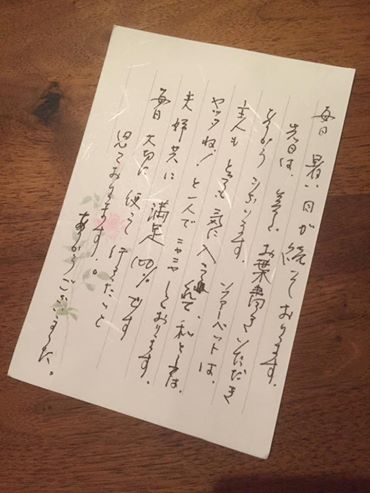 毎日 暑い日が続いております。
先日は、美しいお葉書をいただき
ありがとうございます。ソファーベットは、
主人もとても気に入ってくれて、私としては、
ヤッタね!と一人でニヤニヤしております。
夫婦共に 満足 100% です
毎日 大切に 使って行きたいと
思っております。
ありがとうございました。